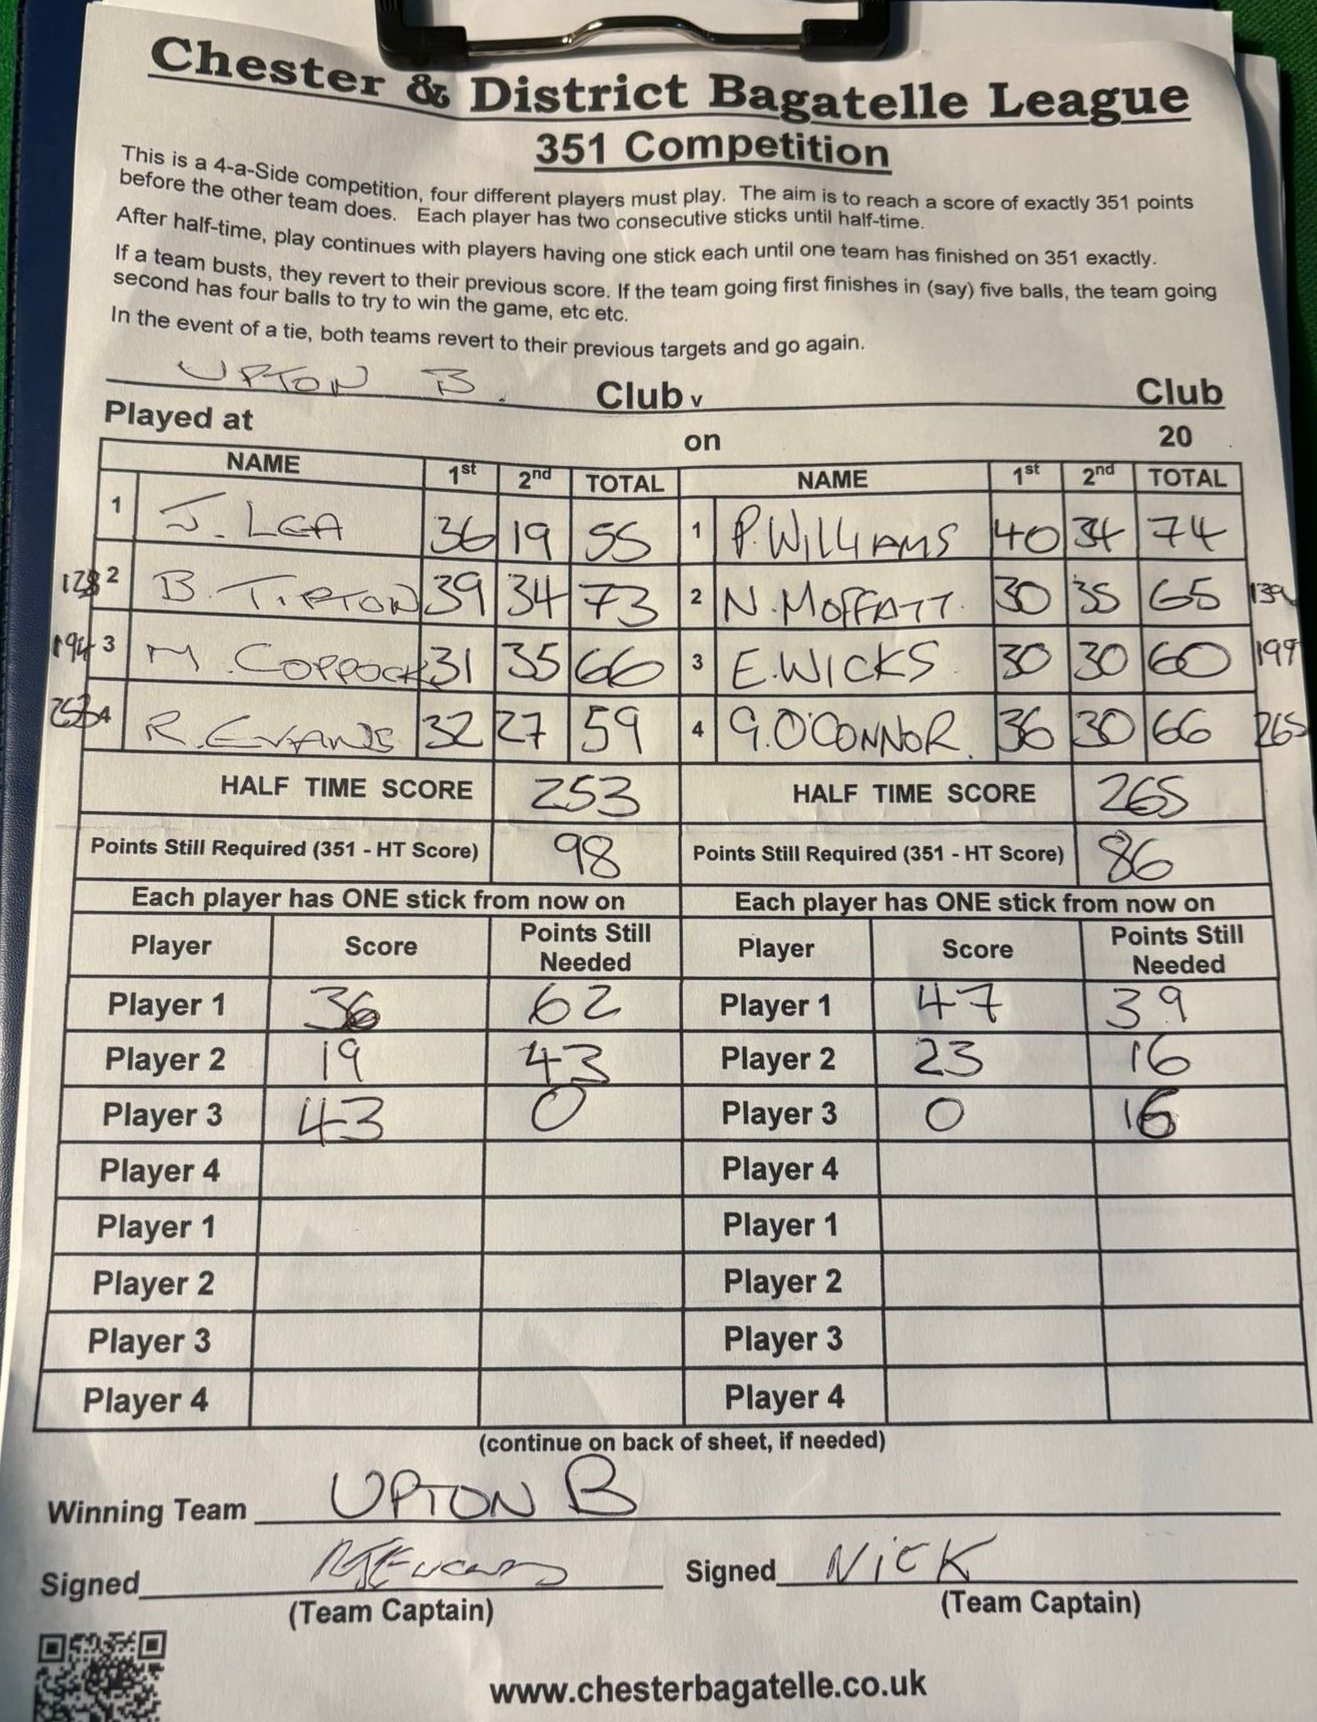 Chester & District Bagatelle League
351 Competition
This is a 4-a-Side competition, four different players must play. The aim is to reach a score of exactly 351 points
before the other team does. Each player has two consecutive sticks until half-time.
After half-time, play continues with players having one stick each until one team has finished on 351 exactly.
If a team busts, they revert to their previous score. If the team going first finishes in (say) five balls, the team going
second has four balls to try to win the game, etc etc.
In the event of a tie, both teams revert to their previous targets and go again.
UPTON B. Club v Club
Played at on 20
NAME 1st 2nd TOTAL NAME 1st 2nd TOTAL
1 J. LEA 36 19 55 1 P. WILLIAMS 40 34 74
128 2 B. TIPTON 39 34 73 2 N. MOFFATT. 30 35 65 139
194 3 M. COPPOCK 31 35 66 3 E. WICKS 30 30 60 199
253 4 R. EVANS 32 27 59 4 G. O'CONNOR. 36 30 66 265
HALF TIME SCORE 253 HALF TIME SCORE 265
Points Still Required (351 - HT Score) 98 Points Still Required (351 - HT Score) 86
Each player has ONE stick from now on Each player has ONE stick from now on
Player Score Points Still Needed Player Score Points Still Needed
Player 1 36 62 Player 1 47 39
Player 2 19 43 Player 2 23 16
Player 3 43 0 Player 3 0 16
Player 4 Player 4
Player 1 Player 1
Player 2 Player 2
Player 3 Player 3
Player 4 Player 4
(continue on back of sheet, if needed)
Winning Team UPTON B
Signed Signed NICK
(Team Captain) (Team Captain)
www.chesterbagatelle.co.uk